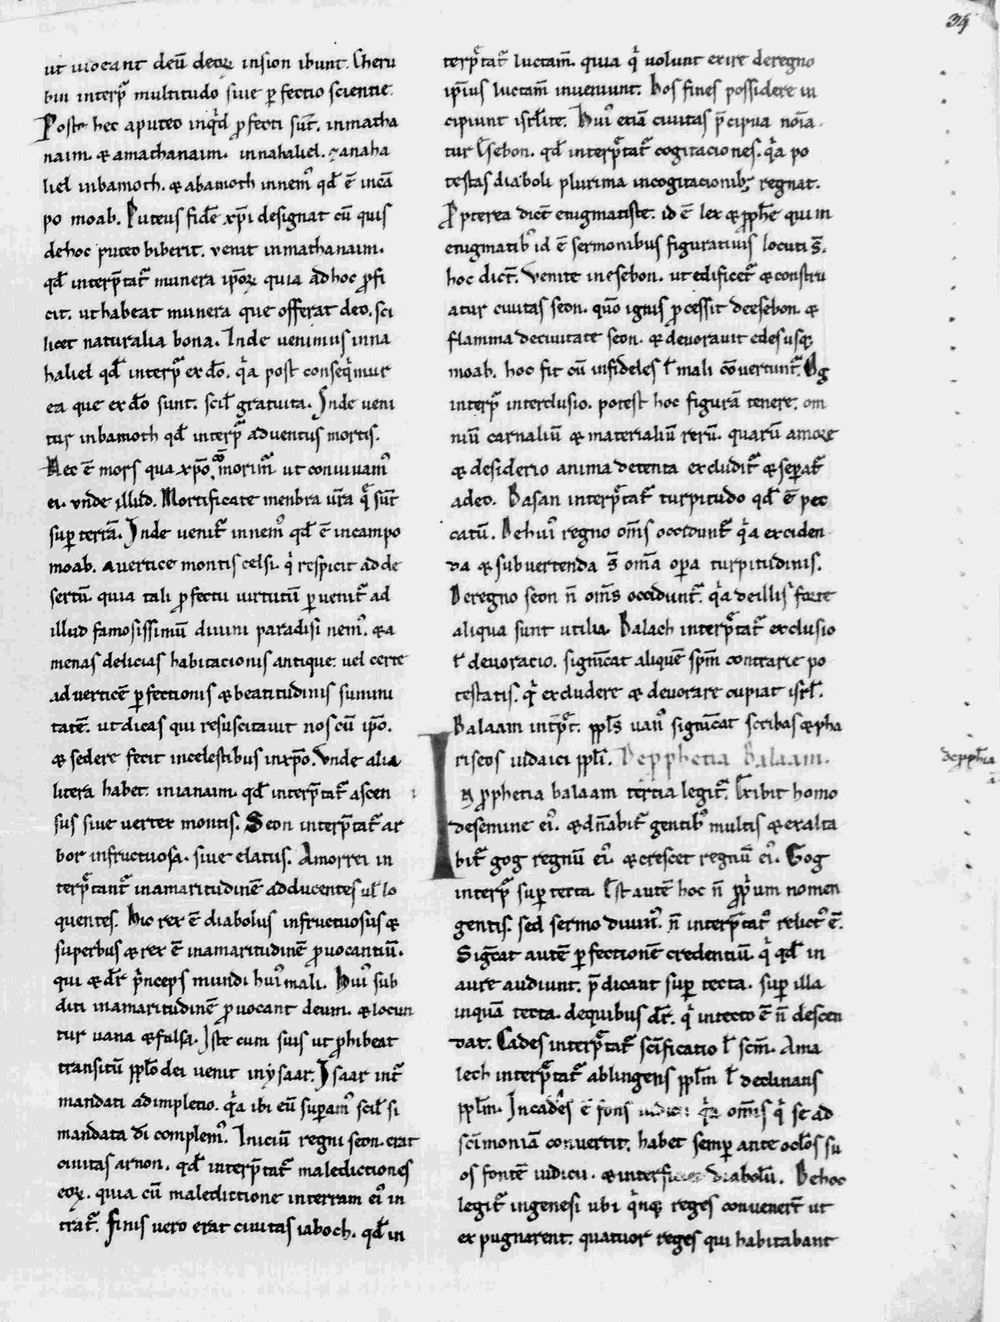 34
ut uideant deū deoꝝ insion ibunt. Cheru
bin interp̄ multitudo siue ꝑfectio scientie
Poste hec aputeo inqͥd ꝓfecti sūt. inmatha
naim. & amathanaim. innahaliel. & anaha
liel inbamoth. & abamoth innem⁹ qđ ē incā
po moab. Puteus fidē xp̄i designat cū quis
dehoc puteo biberit. venit inmathanaim.
qđ interp̄tat̄ munera ip̄oꝝ quia adhoc ꝓfi
cit. ut habeat munera que offerat deo. sci
licet naturalia bona. Inde uenimus inna
haliel qđ interp̄ ex đo. qͥa post conseqͥmur
ea que ex đo sunt. scil̄ gratuita. Inde ueni
tur inbamoth qđ interp̄ aduentus mortis.
Hec ē mors qua xp̄o ꝯmorim̄ ut conuiuam⁹
ei. vnde illud. Mortificate menbra ūra qͥ sūt
suꝑ terrā. Inde uenit̄ innem⁹ qđ ē incampo
moab. auertice montis celsi. qͥ respicit adde
sertū. quia tali ꝓfectu uirtutū ꝑuenit̄ ad
illud famosissimū diuini paradisi nem⁹. & a
menas delicias habitacionis antique. uel certe
ad verticē ꝑfectionis & beatitudinis summi
tatē. ut dicas qui resuscitauit nos cū ip̄o.
& sedere fecit incelestibus inxp̄o. Vnde alia
litera habet. inianaim. qđ interp̄tat̄ ascen
sus siue uertex montis. Seon interp̄tat̄ ar
bor infructuosa. siue elatus. Amorrei in
terp̄tant̄ inamaritudinē adducentes ul̄ lo
quentes. Hic rex ē diabolus infructuosus &
superbus & rex ē inamaritudinē ꝓuocantiū.
qui & dr̄ pͥnceps mundi hui⁹ mali. Hui⁹ sub
diti inamaritudinē ꝓuocant deum. & locun
tur uana & falsa. Iste cum suis ut ꝓhibeat
transitū pp̄lo dei uenit in ysaar. Isaar int̄
mandati adimpletio. qͥa ibi eū suꝑam⁹ scil̄ si
mandata đi complem⁹. Iniciū regni seon. erat
ciuitas arnon. qđ interp̄tat̄ maledictiones
eoꝝ. quia cū maledictione interram ei⁹ in
trat̄. Finis uero erat ciuitas iaboch. qđ in
terp̄tat̄ luctam. quia qͥ uolunt exire deregno
ip̄ius luctam̄ inueniunt. Hos fines possidere in
cipiunt isr̄lite. Hui⁹ etiā ciuitas p̄cipua noīa
tur Esebon. qđ interp̄tat̄ cogitaciones. qͥa po
testas diaboli plurima incogitacionibꝫ regnat.
Ꝓpterea dict̄ enigmatiste. id ē lex & ꝓph̄e qui in
enigmatib⁹ id ē sermonibus figuratiuis locuti s̄.
hoc dict̄. Venite inesebon. ut edificet̄ & constru
atur ciuitas seon. qūo ignis ꝓcessit deesebon. &
flamma deciuitate seon. & deuorauit edes usqꝫ
moab. hoc fit cū infideles l̄ mali cōuertunt̄. Og
interp̄ interclusio. potest hoc figurā tenere. om
niū carnaliū & materialiū rerū. quarū amore
& desiderio anima detenta excludit̄ & seꝑat̄
adeo. Basan interp̄tat̄ turpitudo qđ ē pec
catū. Dehui⁹ regno om̄s occidunt̄ qͥa exciden
da & subuertenda s̄ om̄a oꝑa turpitudinis.
Deregno seon n̄ om̄s occidunt̄. qͥa deillis forte
aliqua sunt utilia. Balach interp̄tat̄ exclusio
l̄ deuoracio. signīcat aliquē sp̄m contrarie po
testatis. qͥ excludere & deuorare cupiat isr̄l.
Balaam int̄p̄t. pp̄ls uan⁹ signīcat scribas & pha
riseos iudaici pp̄li. De ꝓphetia Balaam.
In ꝓphetia balaam tertia legit̄. Exibit homo
desemine ei⁹. & dn̄abit̄ gentib⁹ multis & exalta
bit̄ gog regnū ei⁹. & crescet regnū ei⁹. Gog
interp̄ suꝑ tecta. Est autē hoc n̄ ꝓp̄um nomen
gentis. sed sermo diuin⁹. n̄ interp̄tat⁹ relict⁹ ē.
Signīcat autē ꝑfectionē credentiū. qͥ qđ in
aure audiunt. p̄dicant suꝑ tecta. suꝑ illa
inquā tecta. dequibus dr̄. qͥ intecto ē n̄ descen
dat. Cades interp̄tat̄ scīficatio l̄ scm̄. Ama
lech interp̄tat̄ ablingens pp̄lm l̄ declinans
pp̄lm. Incades ē fons iudicii qͥa om̄is qͥ se ad
scīmoniā conuertit. habet semꝑ ante ocl̄os su
os fontē iudicii. & interficit diabolū. Dehoc
legit̄ ingenesi ubi qͥnqꝫ reges conuenert̄ ut
expugnarent. quatuor reges qui habitabant
de ꝓph̄ia